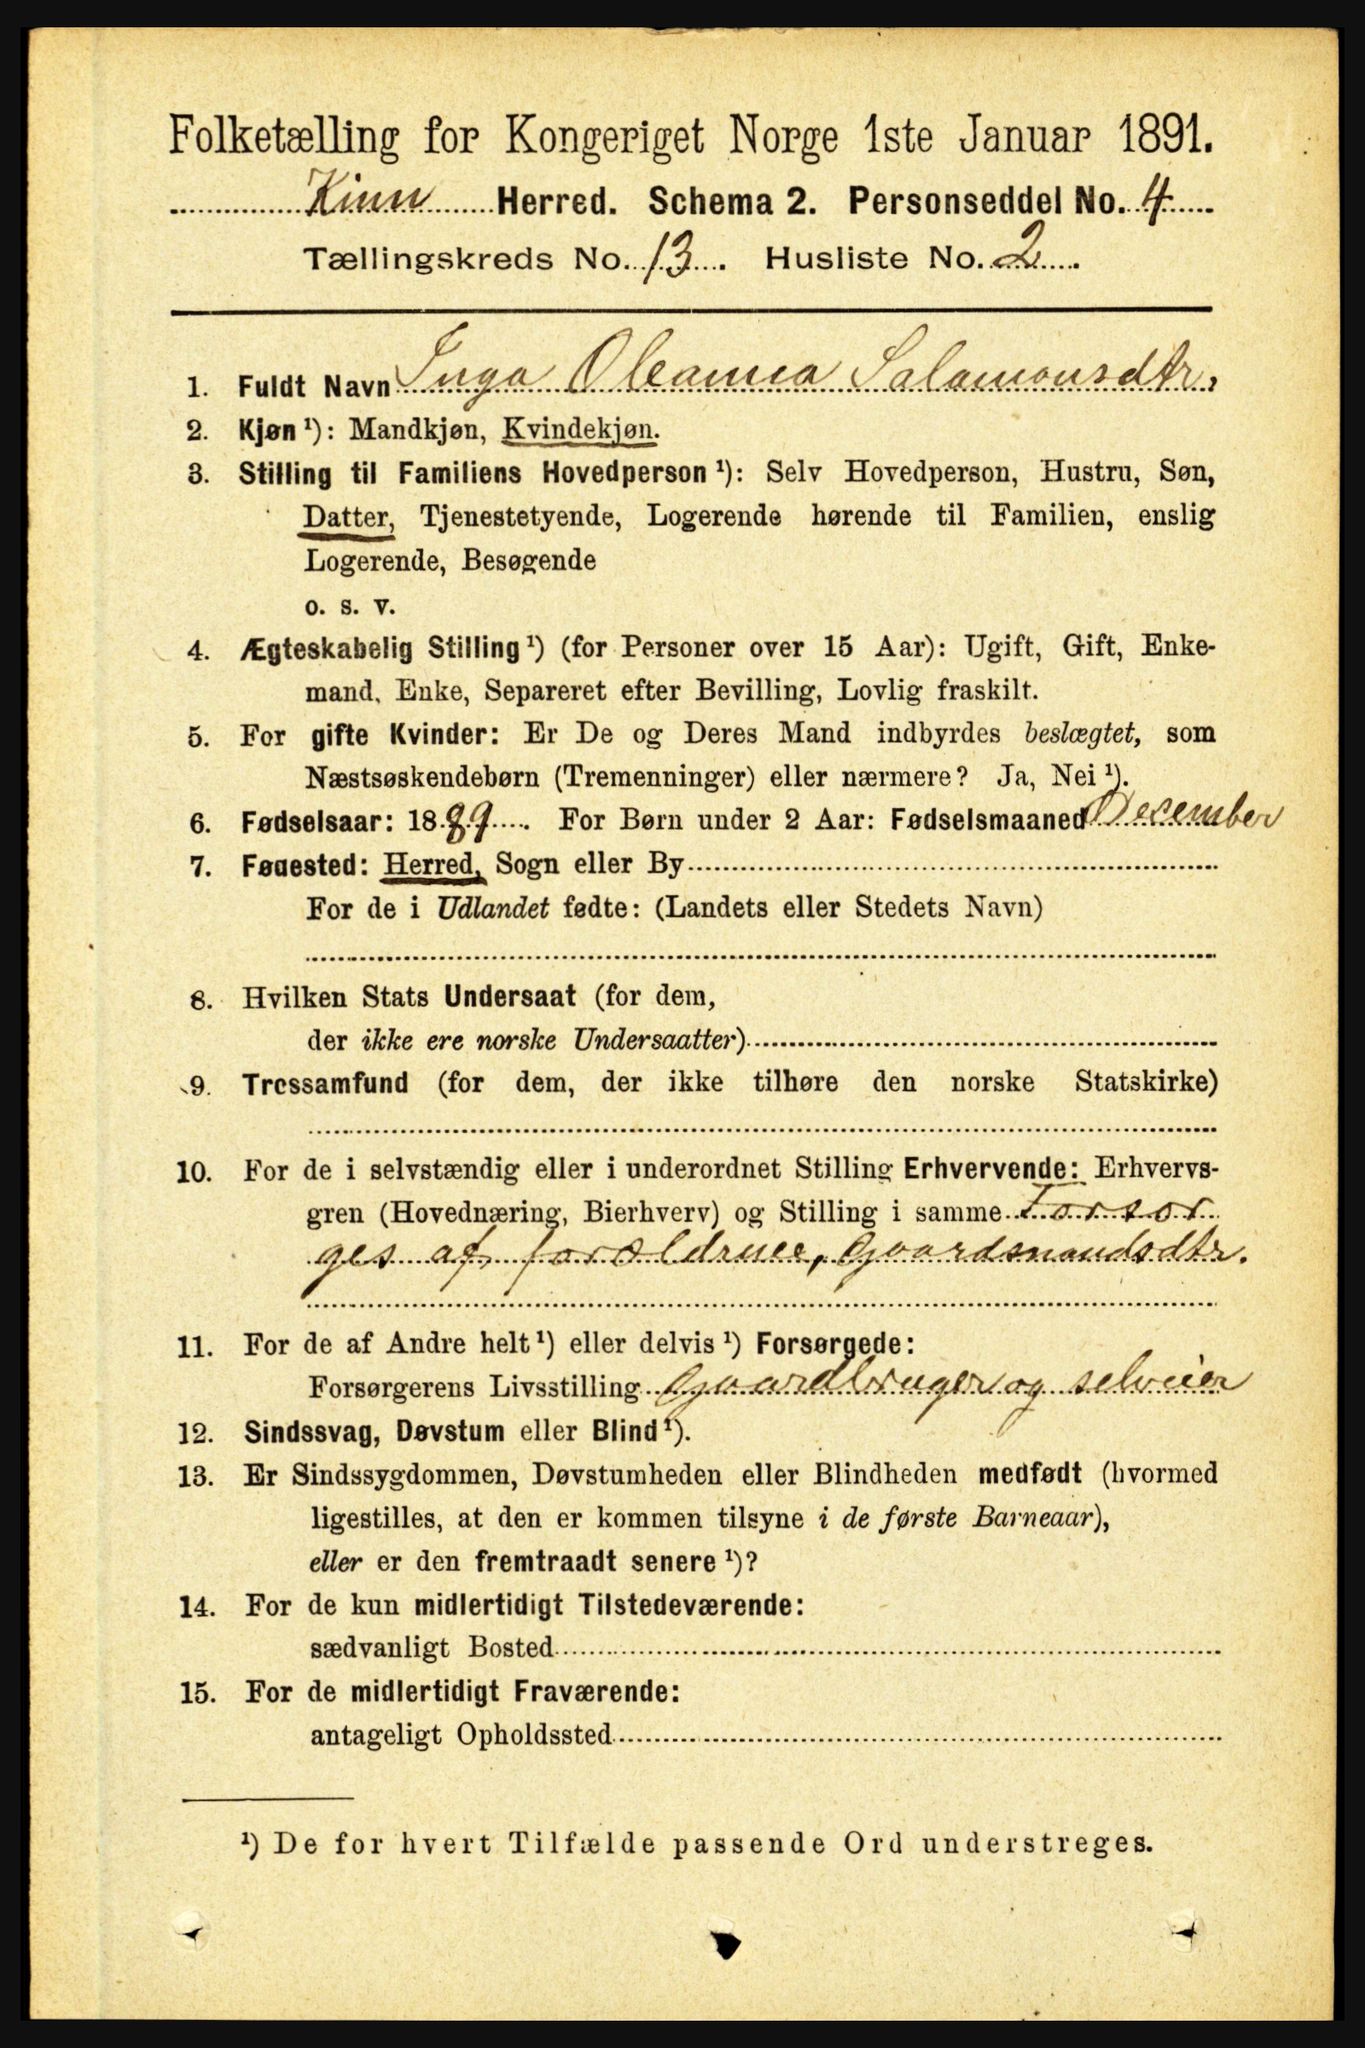 Folketælling for Kongeriget Norge 1ste Januar 1891.
Kinn Herred. Schema 2. Personseddel No. 4
Tællingskreds No. 13. Husliste No. 2.
1. Fuldt Navn Inga Oleanna Salamonsdtr.
2. Kjøn ¹): Mandkjøn, Kvindekjøn.
3. Stilling til Familiens Hovedperson ¹): Selv Hovedperson, Hustru, Søn,
Datter, Tjenestetyende, Logerende hørende til Familien, enslig
Logerende, Besøgende
o. s. v.
4. Ægteskabelig Stilling ¹) (for Personer over 15 Aar): Ugift, Gift, Enke-
mand, Enke, Separeret efter Bevilling, Lovlig fraskilt.
5. For gifte Kvinder: Er De og Deres Mand indbyrdes beslægtet, som
Næstsøskendebørn (Tremenninger) eller nærmere? Ja, Nei ¹).
6. Fødselsaar: 1889. For Børn under 2 Aar: Fødselsmaaned December
7. Fødested: Herred, Sogn eller By
For de i Udlandet fødte: (Landets eller Stedets Navn)
8. Hvilken Stats Undersaat (for dem,
der ikke ere norske Undersaatter)
9. Trossamfund (for dem, der ikke tilhøre den norske Statskirke)
10. For de i selvstændig eller i underordnet Stilling Erhvervende: Erhvervs-
gren (Hovednæring, Bierhverv) og Stilling i samme Forsør
ges af forældrene, Gaardmandsdtr.
11. For de af Andre helt ¹) eller delvis ¹) Forsørgede:
Forsørgerens Livsstilling Gaardbruger og selveier
12. Sindssvag, Døvstum eller Blind ¹).
13. Er Sindssygdommen, Døvstumheden eller Blindheden medfødt (hvormed
ligestilles, at den er kommen tilsyne i de første Barneaar),
eller er den fremtraadt senere ¹)?
14. For de kun midlertidigt Tilstedeværende:
sædvanligt Bosted
15. For de midlertidigt Fraværende:
antageligt Opholdssted
¹) De for hvert Tilfælde passende Ord understreges.